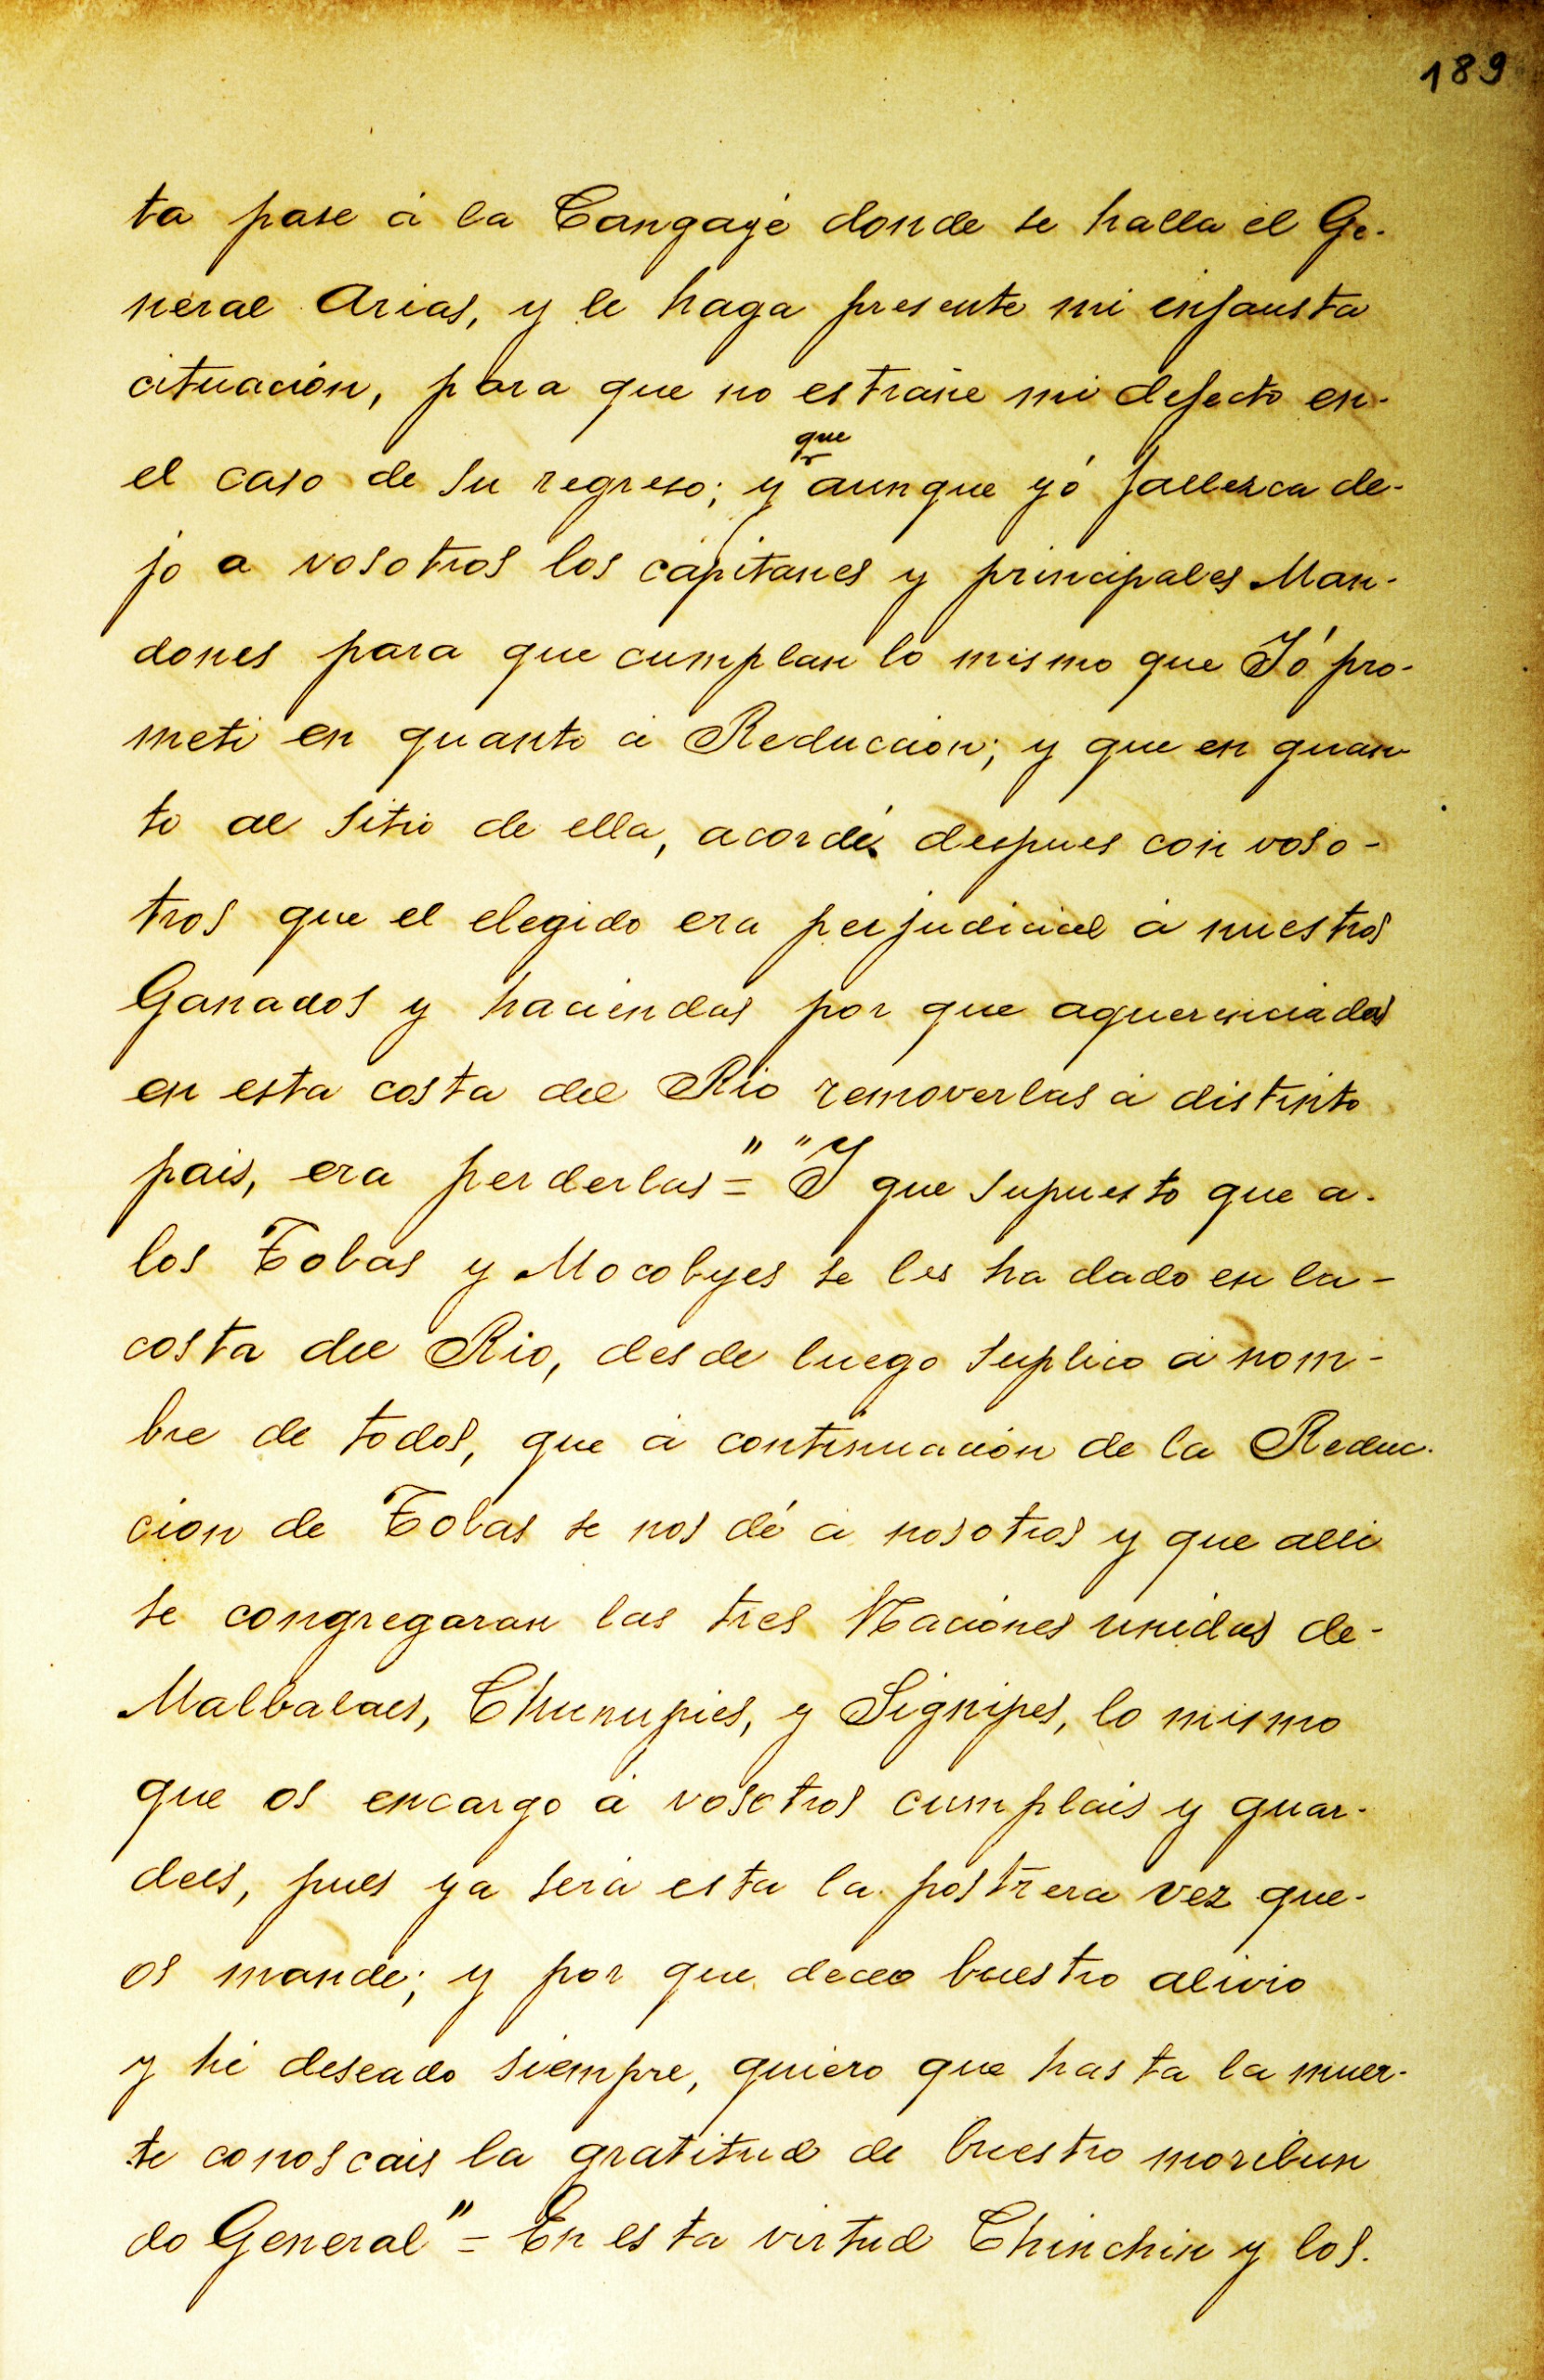 189
ta pase á la Cangayé donde se halla el Ge-
neral Arias, y le haga presente mi infausta
cituación, para que no estrañe mi defecto en-
que
el caso de su regreso; y aunque yó fallezca de-
jo a vosotros los capitanes y principales Man-
dones para que cumplan lo mismo que Yó pro-
meti en quanto á Reduccion; y que en quan-
to al sitio de ella, acordé despues con voso-
tros que el elegido era perjudicial á nuestros
Ganados y haciendas por que aquerenciadas
en esta costa del Rio removerlas á distinto
pais, era perderlas"= "Y que supuesto que a-
los Tobas y Mocobyes se les ha dado en la-
costa del Rio, desde luego suplico á nom-
bre de todos, que á continuación de la Reduc-
cion de Tobas se nos dé á nosotros y que alli
se congregaran las tres Naciones unidas de-
Malbalaes, Chunupies, y Signipes, lo mismo
que os encargo á vosotros cumplais y guar-
deis, pues ya será esta la postrera vez que-
os mande; y por que deceo buestro alivio
y hé deseado siempre, quiero que hasta la muer-
te conoscais la gratitud de buestro moribun
do General"= En esta virtud Chinchin y los.